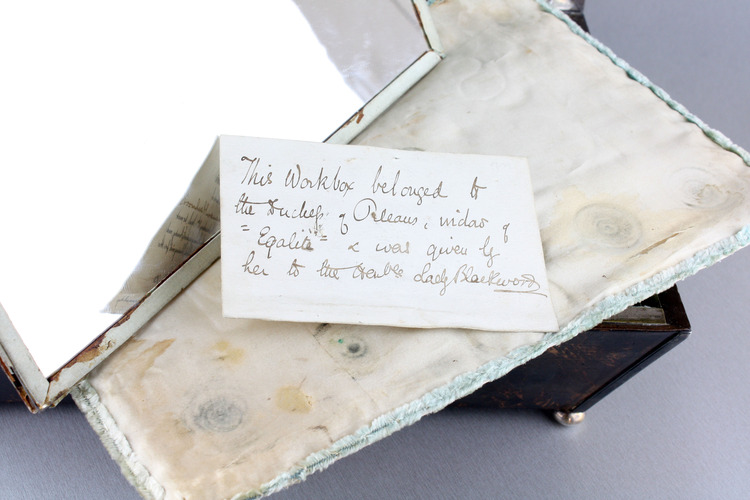 This Workbox belonged to
the Duchess of Orleans, widow of
"Egalité" & was given by
her to the Honble Lady Blackwood